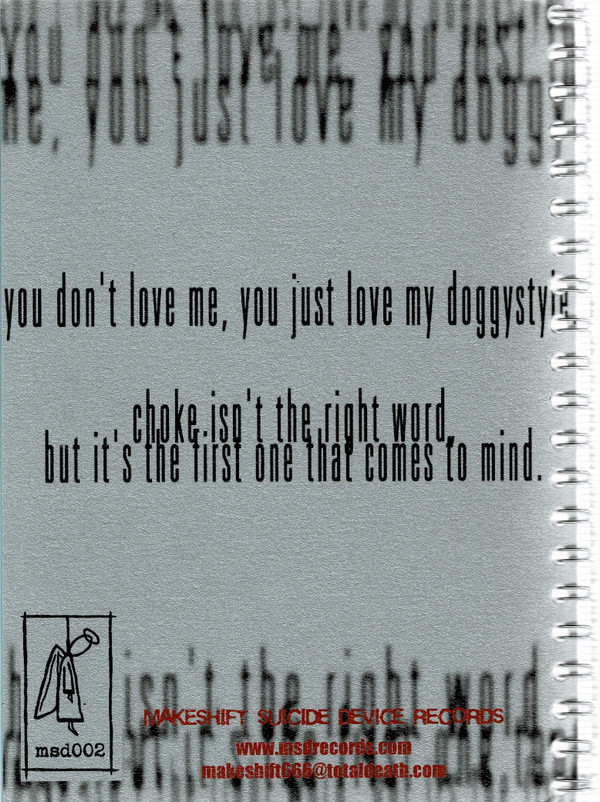 you don't love me, you just
me, you just love my doggy
you don't love me, you just love my doggystyle
choke isn't the right word,
but it's the first one that comes to mind.
isn't the right word,
MAKESHIFT SUICIDE DEVICE RECORDS
www.msdrecords.com
makeshift666@totaldeath.com
msd002